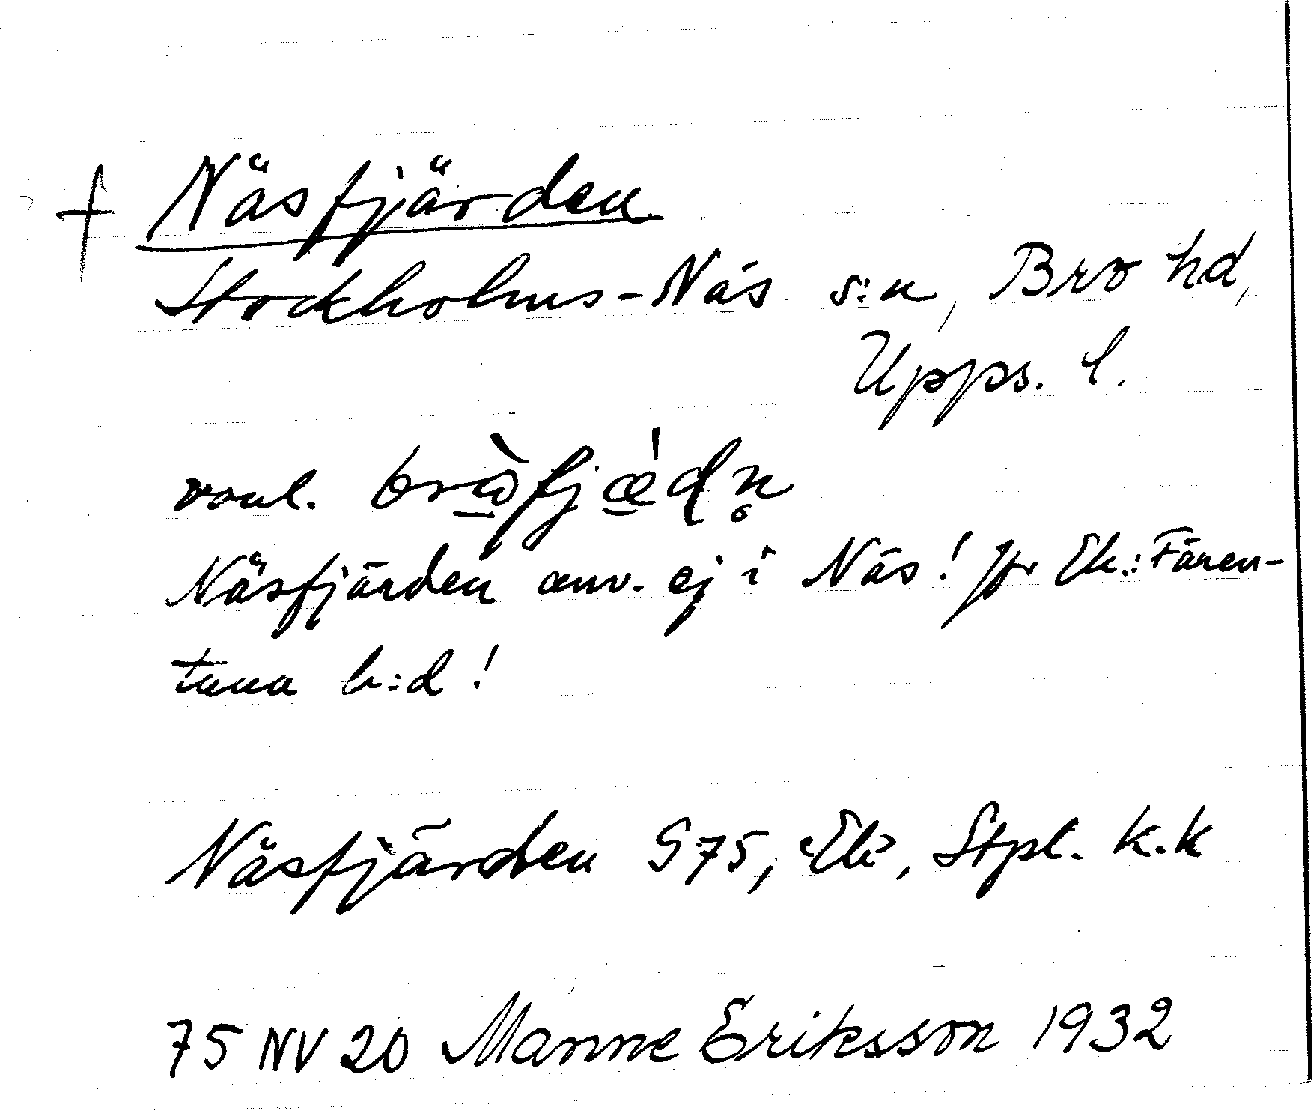 + Näsfjärden
Stockholms-Näs s:n, Bro hd,
Upps. l.
vanl. bròfjǽdn̥
Näsfjärden anv. ej i Näs! Jfr Ek: Fären-
tuna h:d!
Näsfjärden S75, Ek, Stpl. k.k
75 NV 20 Manne Eriksson 1932